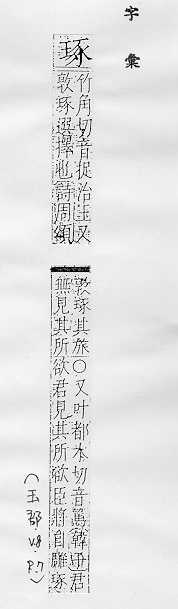 字彙
琢
竹角切音捉治玉又
敦琢選擇也詩周頌
敦琢其旅〇又叶都木切音篤韓非君
無見其所欲君見其所欲臣將自雕琢
(玉部.V.8.P.7)